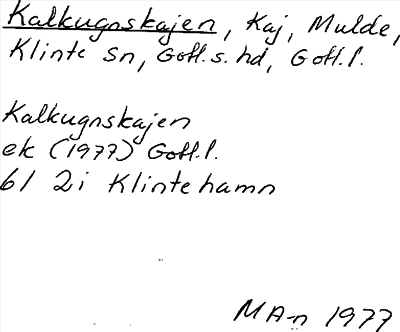 Kalkugnskajen, Kaj, Mulde,
Klinte sn, Gotl. s. hd, Gotl. l.
Kalkugnskajen
ek (1977) Gotl. l.
6I 2i Klintehamn
MA-n 1977